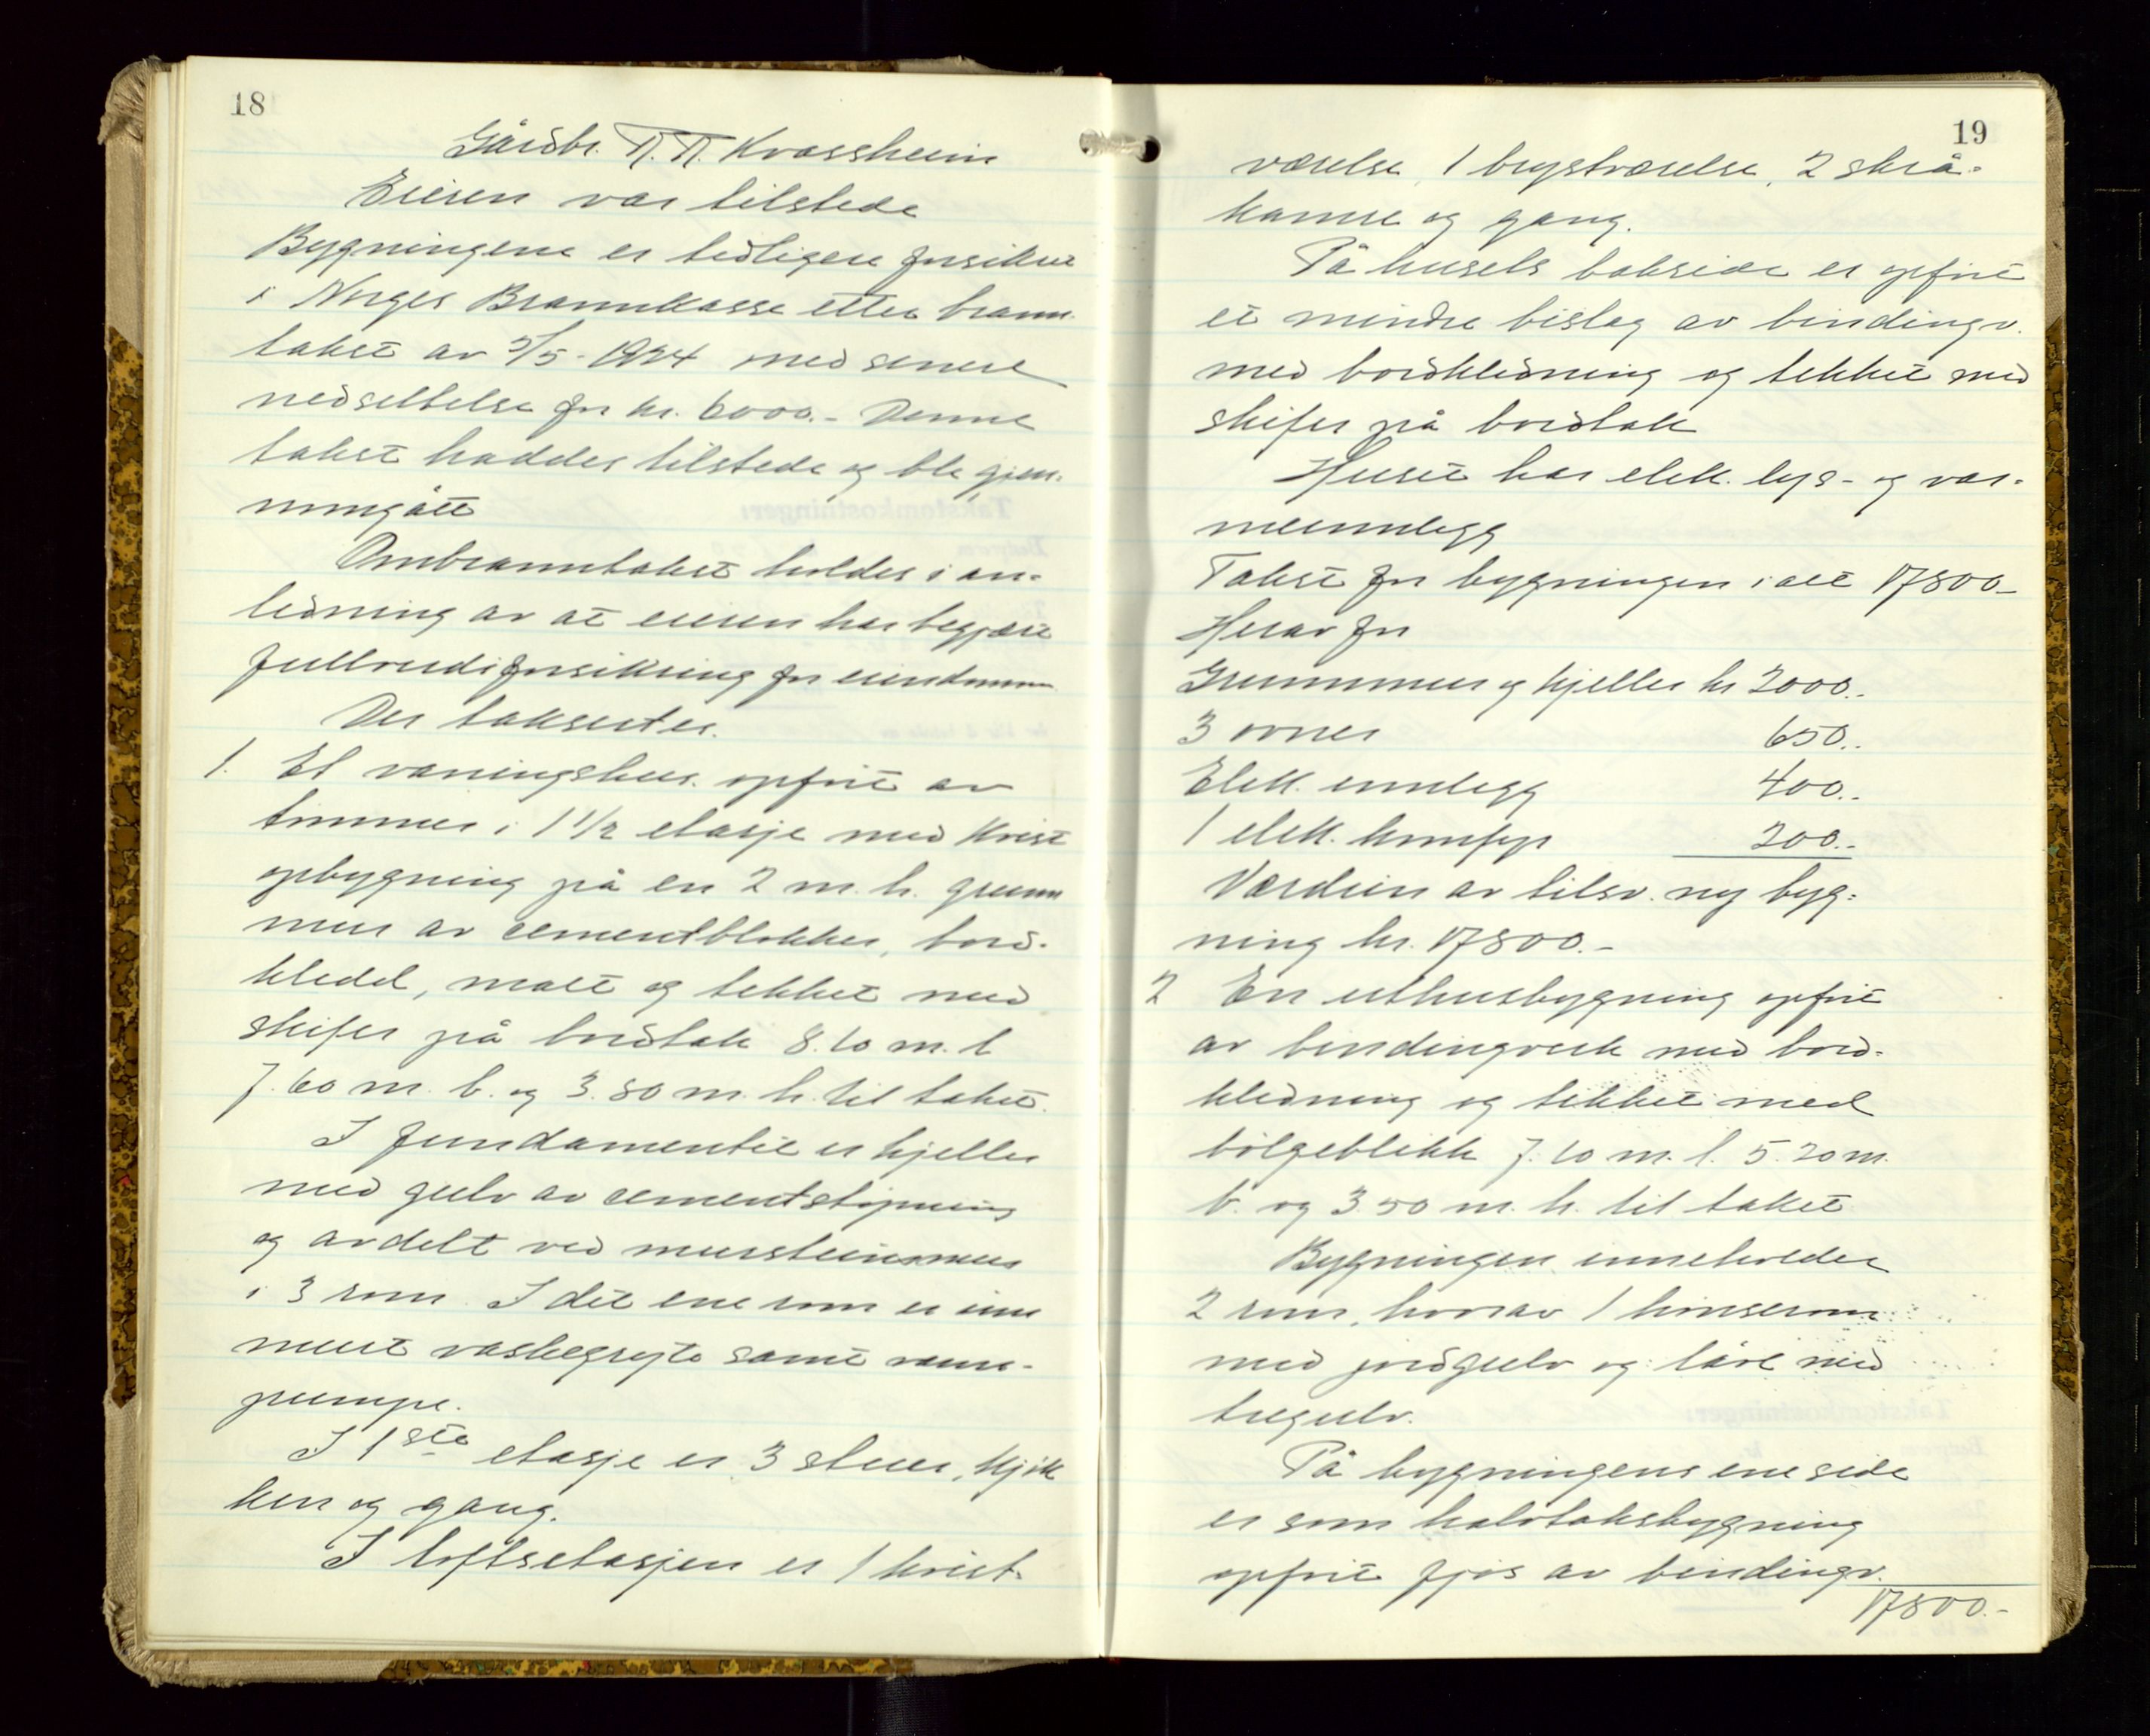 18
Gårdbr. T. T. Kvassheim
Eieren var tilstede
Bygningene er tidligere forsikret
i Norges Brannkasse etter brann-
takst av 5/5-1924 med senere
nedsettelse for kr. 6000.- Denne
takst haddes tilstede og ble gjen-
nomgått
Ombranntakst holdes i an-
ledning av at eieren har begjært
fullverdiforsikring for eiendommen
Der takseres.
1. Et våningshus opført av
tømmer i 1 1/2 etasje med kvist
opbygning på en 2 m. h. grunn
mur av cementblokker, bord-
kledd, malt og tekket med
skifer på bordtak 8.10 m. l
7.60 m. b. og 3.80 m. h. til taket.
I fundamentet er kjeller
med gulv av cementstøpning
og avdelt ved murstensmur
i 3 rom. I det ene rom er inn
muret vaskegryte samt vann-
pumpe.
I 1ste etasje er 3 stuer, kjøk
ken og gang.
I loftsetasjen er 1 kvist-
19
værelse, 1 brystværelse, 2 skrå-
kamre og gang.
På husets bakside er opført
et mindre bislag av bindingv.
med bordkledning og tekket med
skifer på bordtak
Huset har elek. lys- og var-
meinnlegg
Takst for bygningen i alt 17800.-
Herav for
Grunnmur og kjeller kr 2000.-
3 ovner 650.-
Elek. innlegg 400.-
1 elek. komfyr 200.-
Verdien av tilsv. ny byg-
ning kr. 17800.-
2 En uthusbygning opført
av bindingverk med bord-
kledning og tekket med
bølgeblikk 7.10 m. l. 5.20 m.
b. og 3.50 m. h. til taket
Bygningen inneholder
2 rom, hvorav 1 hønserom
med jordgulv og låve med
tregulv.
På bygningens ene side
er som halvtaksbygning
opført fjøs av bindingv.
17800.-